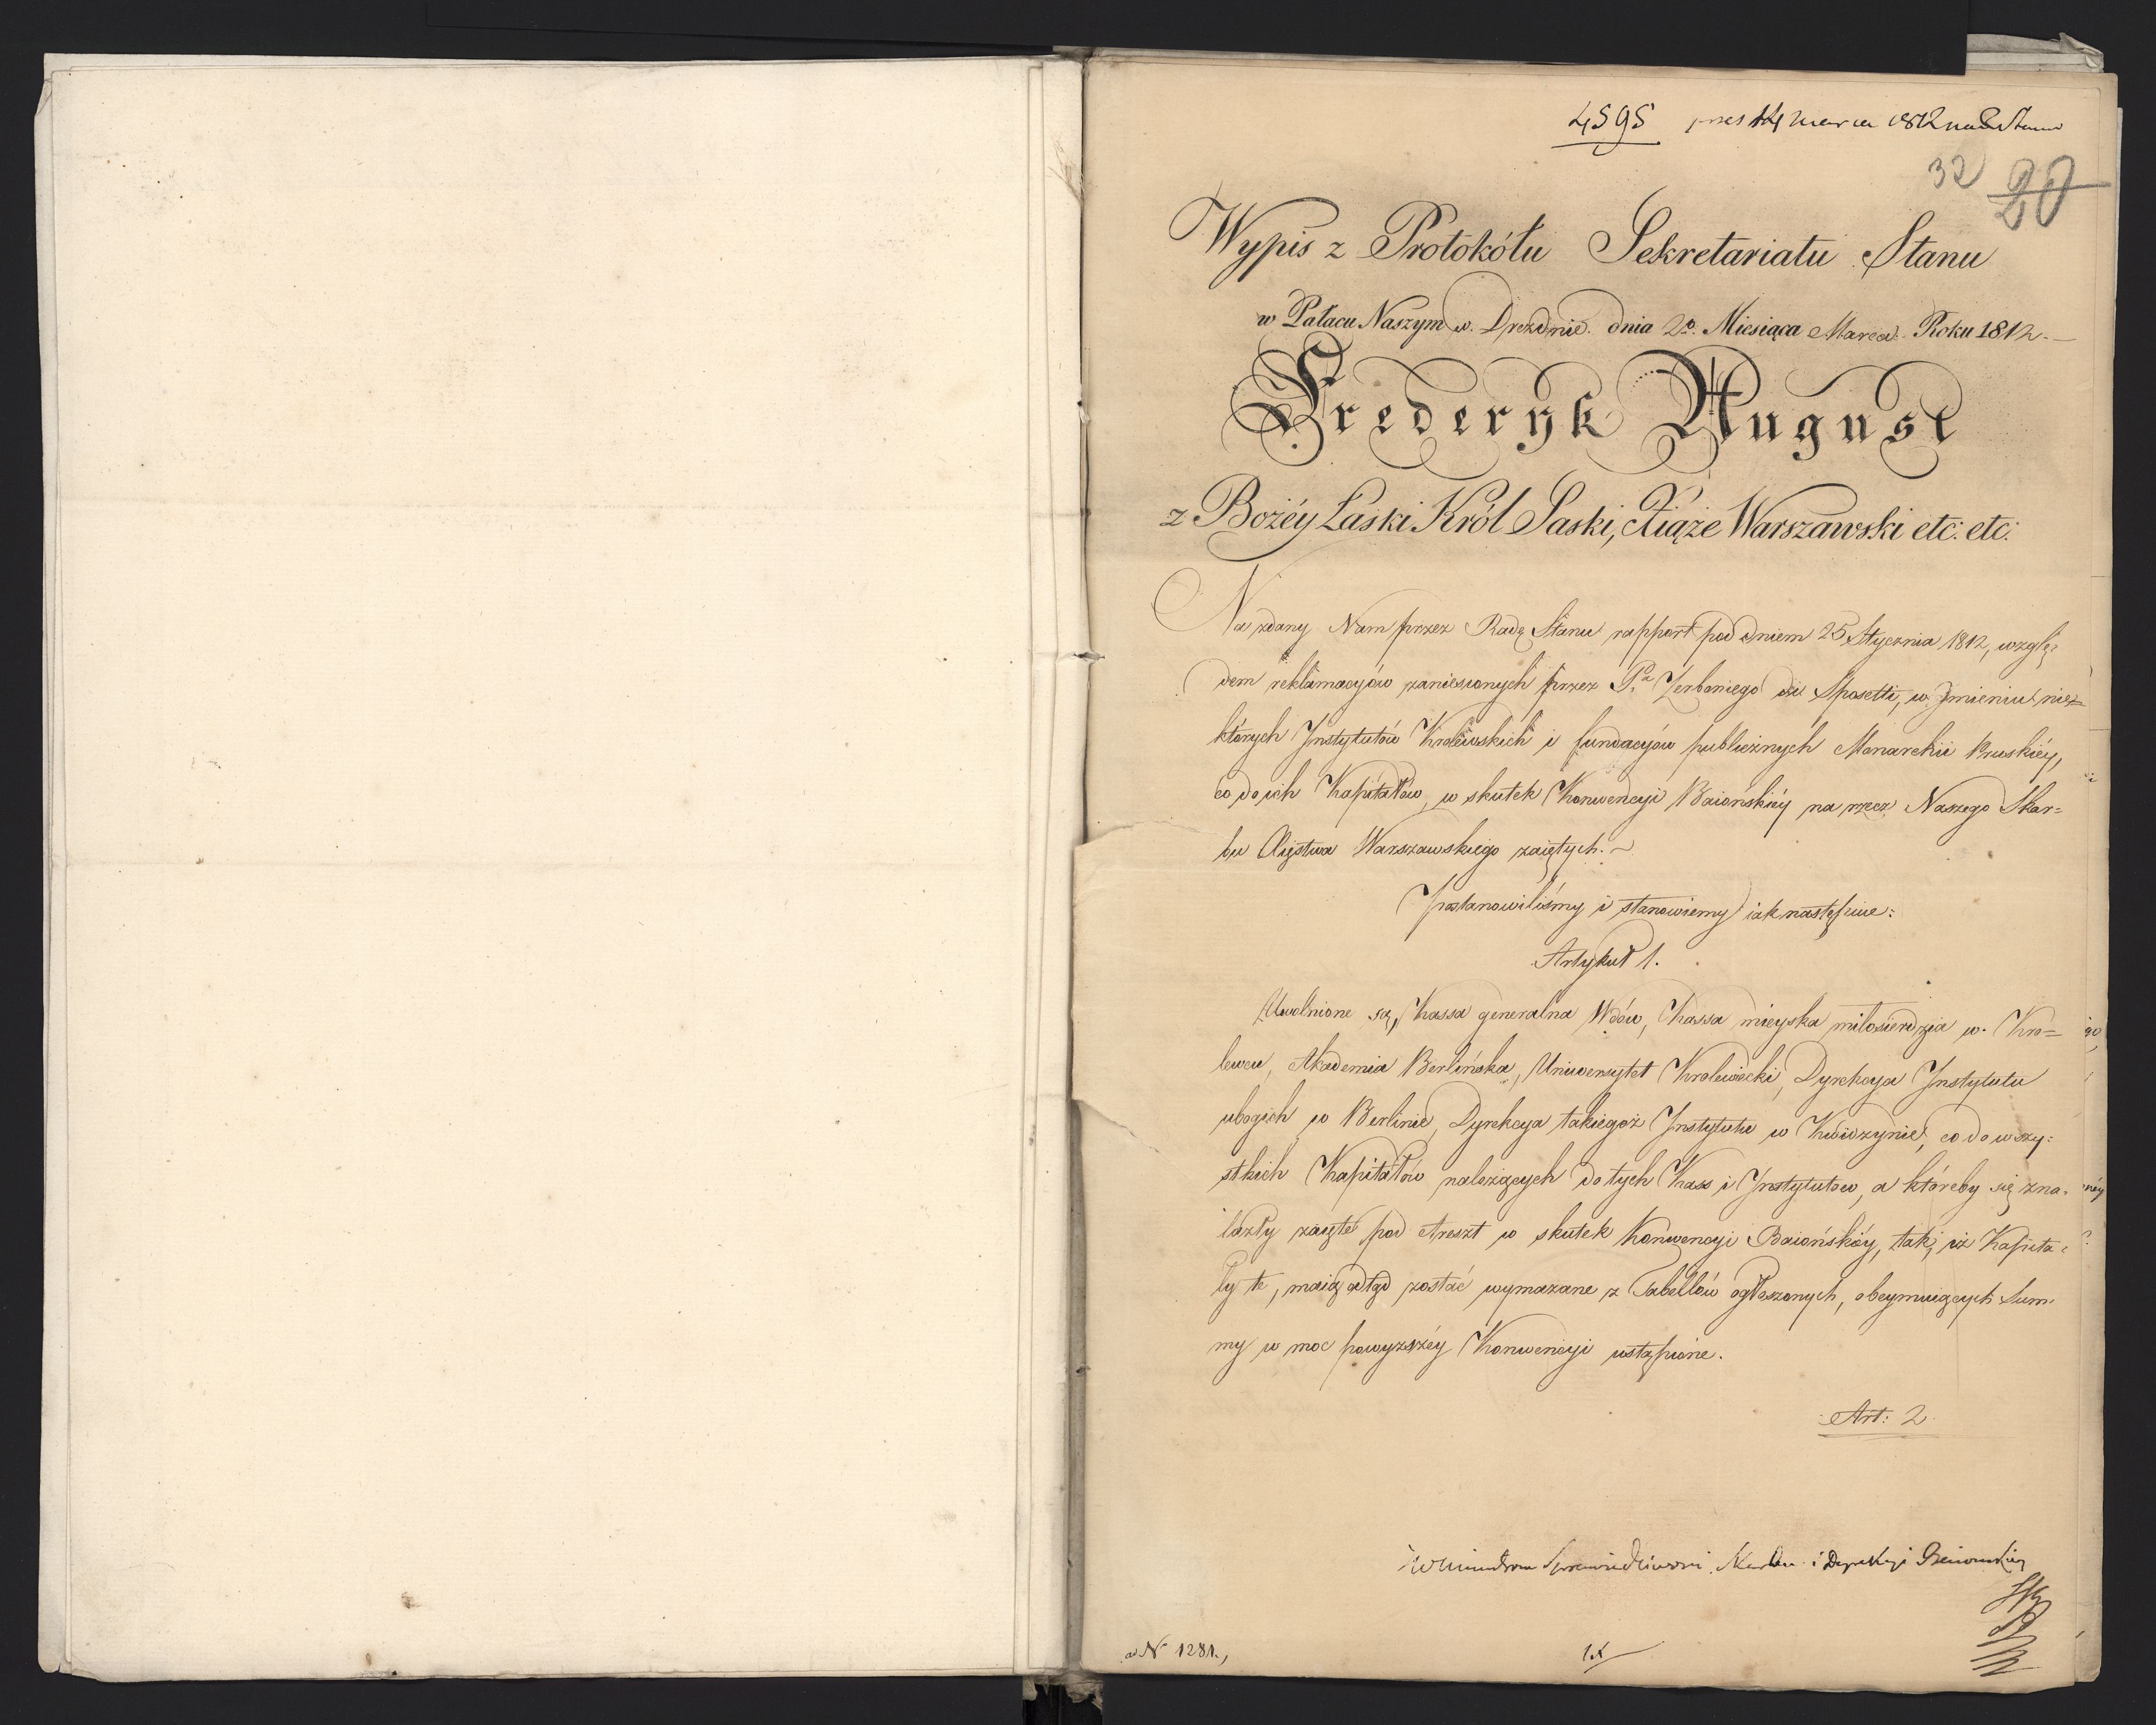 4595 marca 1812
32 20
Wypis z Protokółu Sekretariatu Stanu
w Pałacu Naszym w Dreźnie dnia 20. Miesiąca Marca Roku 1812.
Frederyk August
z Bożéy Łaski Król Saski, Xiąże Warszawski etc: etc:
Na zdany Nam przez Radę Stanu rapport pod dniem 25 Stycznia 1812, wzglę=
dem reklamacyów zaniesionych przez Pa Zerboniego di Sposetti, w Jmieniu nie=
których Jnstytutów Krolewskich i fundacyów publicznych Monarchii Pruskiéy,
co do ich Kapitałów, w skutek Konwencyi Baiońskiéy na rzecz Naszego Skar=
bu Xięstwa Warszawskiego zaiętych.
Postanowiliśmy i stanowiemy iak następuie:
Artykuł 1.
Uwolnione są, Kassa generalna Wdów, Kassa mieyska miłosierdzia w Kro=
lewcu, Akademia Berlińska, Uniwersytet Krolewiecki, Dyrekcya Jnstytutu
ubogich w Berlinie, Dyrekcya takiegoż Jnstytutu w Kwidzynie, co do wszy=
stkich Kapitałów należących do tych Kass i Jnstytutow, a któreby się zna=
lazły zaięte pod Areszt w skutek Konwencyi Baiońskiéy, tak, iż Kapita=
ły te, maią odtąd zostać wymazane z Tabellów ogłoszonych, obeymuiących Sum=
my w moc powyższéy Konwencyi ustąpione.
Art: 2.
Sprawiedliwości, Skarbu i Dyrekcyi
ad N 1281.,